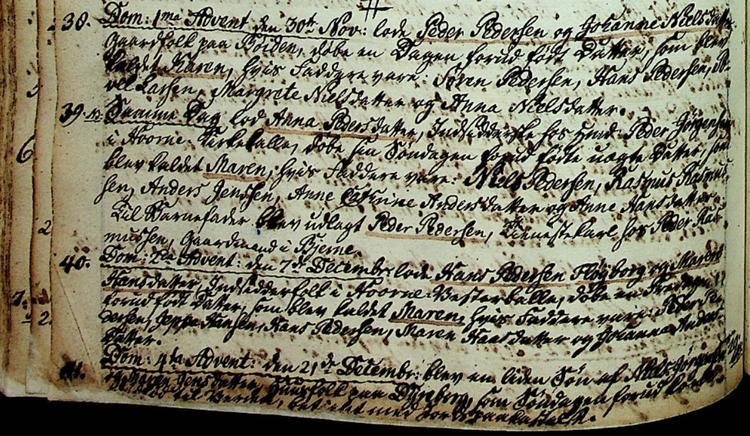 38. Dom: 1ma Advent: den 30te Nov: lode Peder Pedersen og Johanne Nielsdatter
Gaardfolk paa Böiden, döbe en Dagen forud födt Datter, som blev
kaldet Karen, hvis Faddere vare: Sören Pedersen, Hans Pedersen,
Larsen, Margrete Nielsdatter og Anna Nielsdatter.
39. Samme Dag lod Anna Pedersdatter, Indsidderske hos Huusmd: Peder Jörgensen
i Hoorne Kirkeballe, döbe sin Söndagen forud födte uægte Datter, som
blev kaldet Maren, hvis Faddere vare: Niels Pedersen, Rasmus Rasmus
sen, Anders Jenssen, Anne Andersdatter og Anne Hansdatter.
Til Barnefader blev udlagt Peder Pedersen, Tienestekarl hos Peder Ras
mussen, Gaardmand i Bjerne.
40. Dom: 2da Advent: den 7de Decembr: lode Hans Pedersen og Maren
Hansdatter, Indsidderfolk i Hoorne Vesterballe, döbe en
forud födt Datter, som blev kaldet Maren, hvis Faddere vare: Peder
dersen, Jeppe Hansen, Hans Pedersen, Maren Hansdatter og Johanna Anders
datter.
41. Dom: 4ta Advent: den 21de Decembr: blev en liden Sön af Mads Jörgensen
og Karen Jensdatter, Huusfolk paa Dyreborg, som Söndagen forud
til Verden, med Jords paakastelse.
6
2